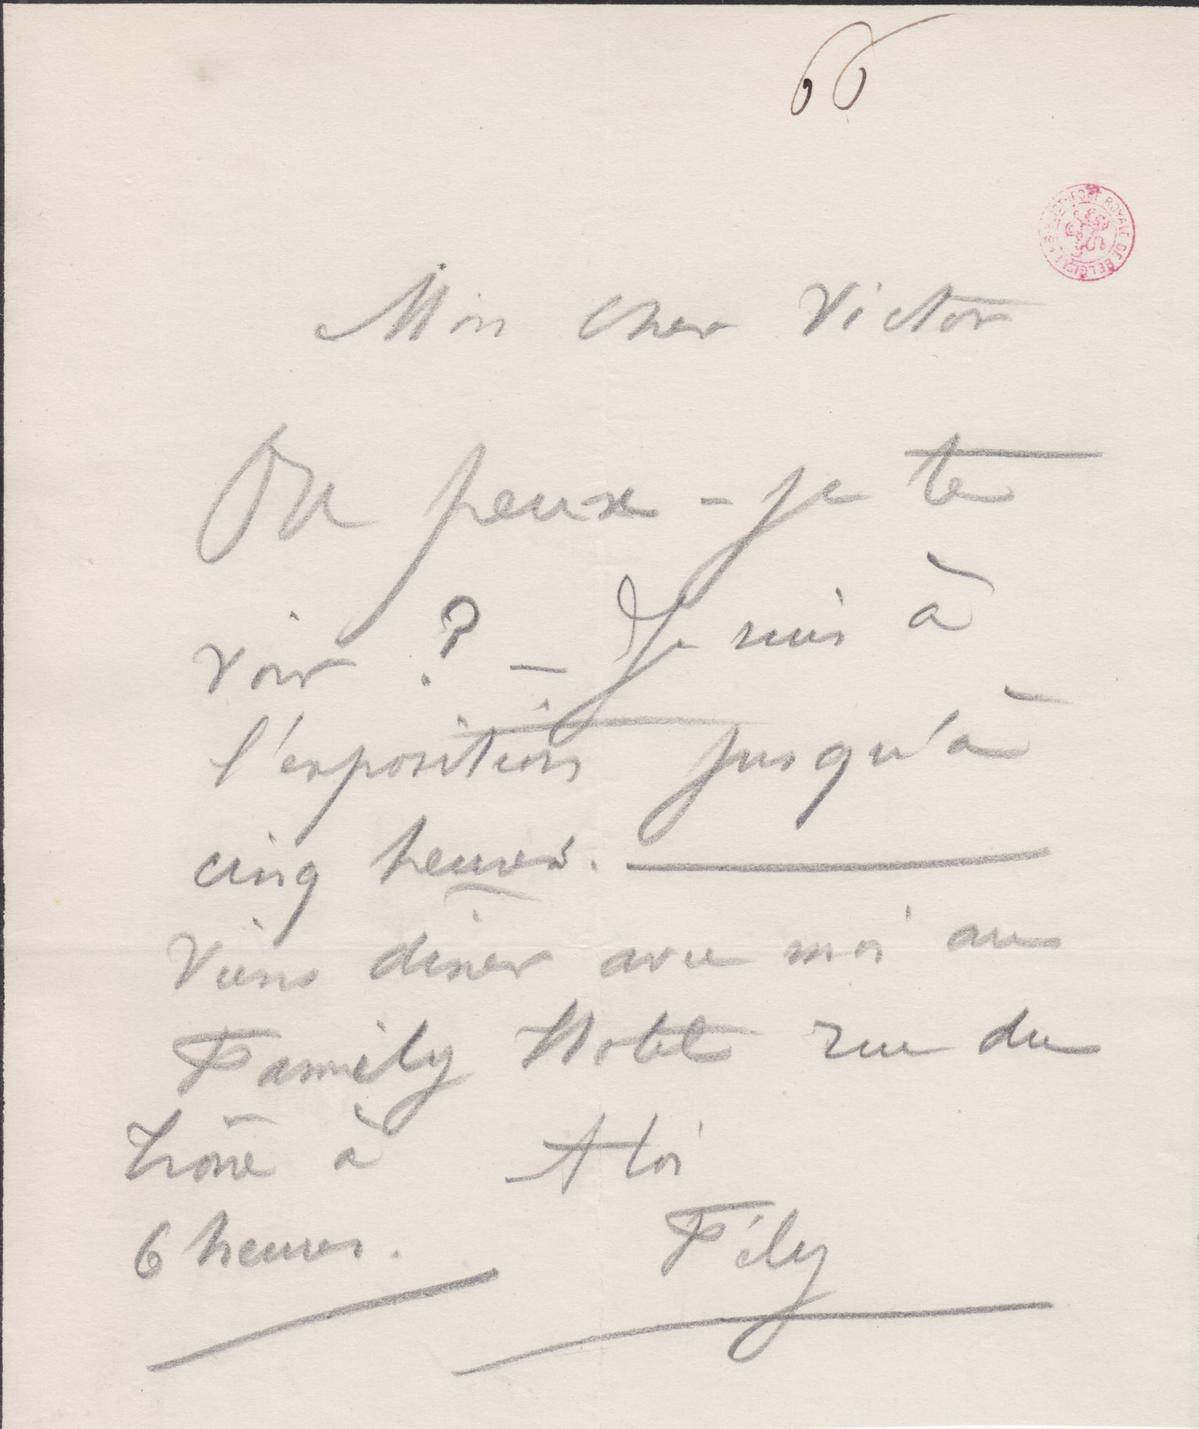 66
BIBLIOTHÈQUE ROYALE DE BELGIQUE
Mon cher Victor
Ou peux-je te
voir ? _ Je suis à
l'exposition jusqu'à
cinq heures. ___
Viens dîner avec moi au
Family Hotel rue du
Trône à A toi
6 heures. Fély